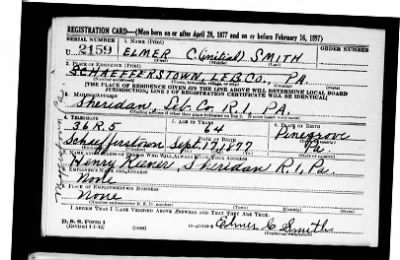 REGISTRATION CARD—(Men born on or after April 28, 1877 and on or before February 16, 1897)
SERIAL NUMBER 1. NAME (Print) ORDER NUMBER
U 2159 ELMER C(initial) SMITH
(First) (Middle) (Last)
2. PLACE OF RESIDENCE (Print)
SCHAEFFERSTOWN, LEB. CO. PA.
[THE PLACE OF RESIDENCE GIVEN ON THE LINE ABOVE WILL DETERMINE LOCAL BOARD
JURISDICTION; LINE 2 OF REGISTRATION CERTIFICATE WILL BE IDENTICAL]
3. MAILING ADDRESS
Sheridan, Leb. Co. R. 1, PA.
4. TELEPHONE 5. AGE IN YEARS 6. PLACE OF BIRTH
36 R. 5 64 Pinegrove
DATE OF BIRTH
Schaefferstown Sept. 17, 1877 Pa
7. NAME AND ADDRESS OF PERSON WHO WILL ALWAYS KNOW YOUR ADDRESS
Henry Keener, Sheridan R. 1, Pa.
8. EMPLOYER'S NAME AND ADDRESS
None
9. PLACE OF EMPLOYMENT OR BUSINESS
None
I AFFIRM THAT I HAVE VERIFIED ABOVE ANSWERS AND THAT THEY ARE TRUE.
D. S. S. Form 1
(Revised 4-1-42) Elmer C Smith